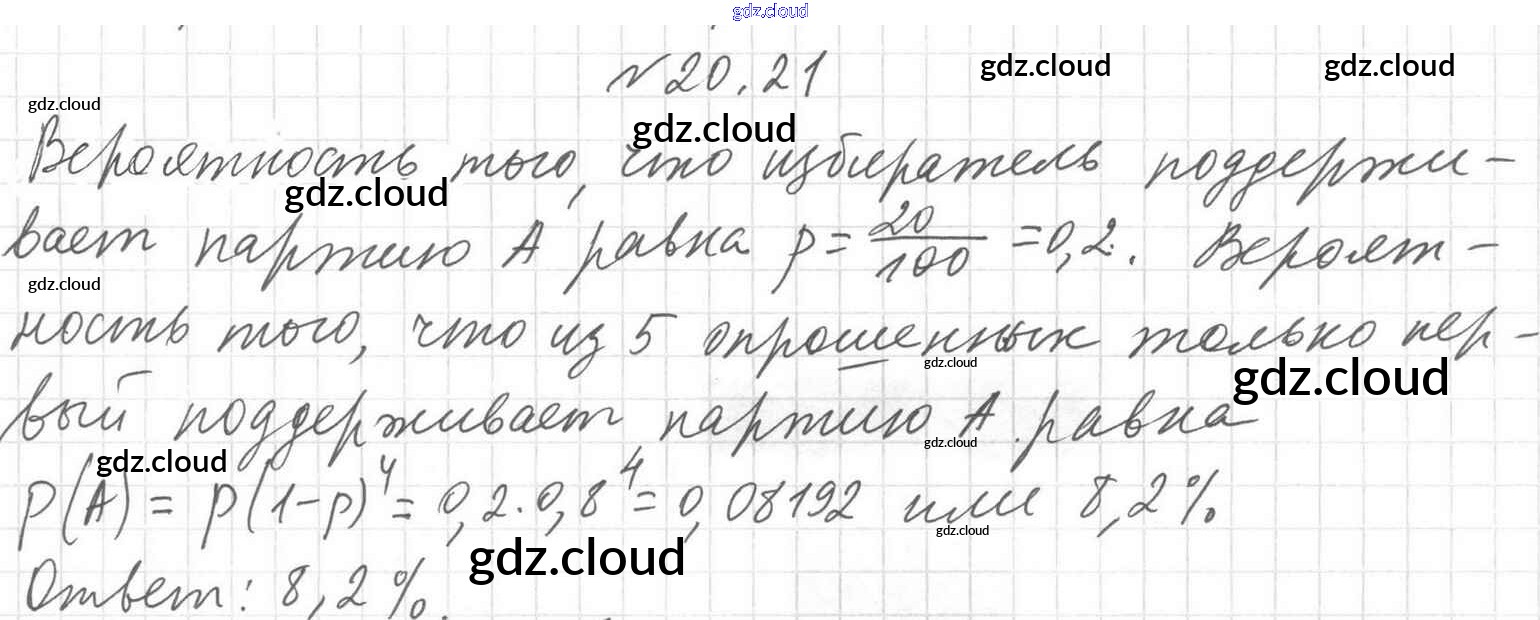 gdz.cloud
№20.21
gdz.cloud
gdz.cloud
gdz.cloud
gdz.cloud
Вероятность того, что избиратель поддержи-
gdz.cloud
вает партию А равна p = 20/100 = 0,2. Вероят-
gdz.cloud
ность того, что из 5 опрошенных только пер-
gdz.cloud
gdz.cloud
вый поддерживает партию А равна
gdz.cloud
gdz.cloud
P(A) = p(1-p)⁴ = 0,2·0,8⁴ = 0,08192 или 8,2%
gdz.cloud
gdz.cloud
Ответ: 8,2%.